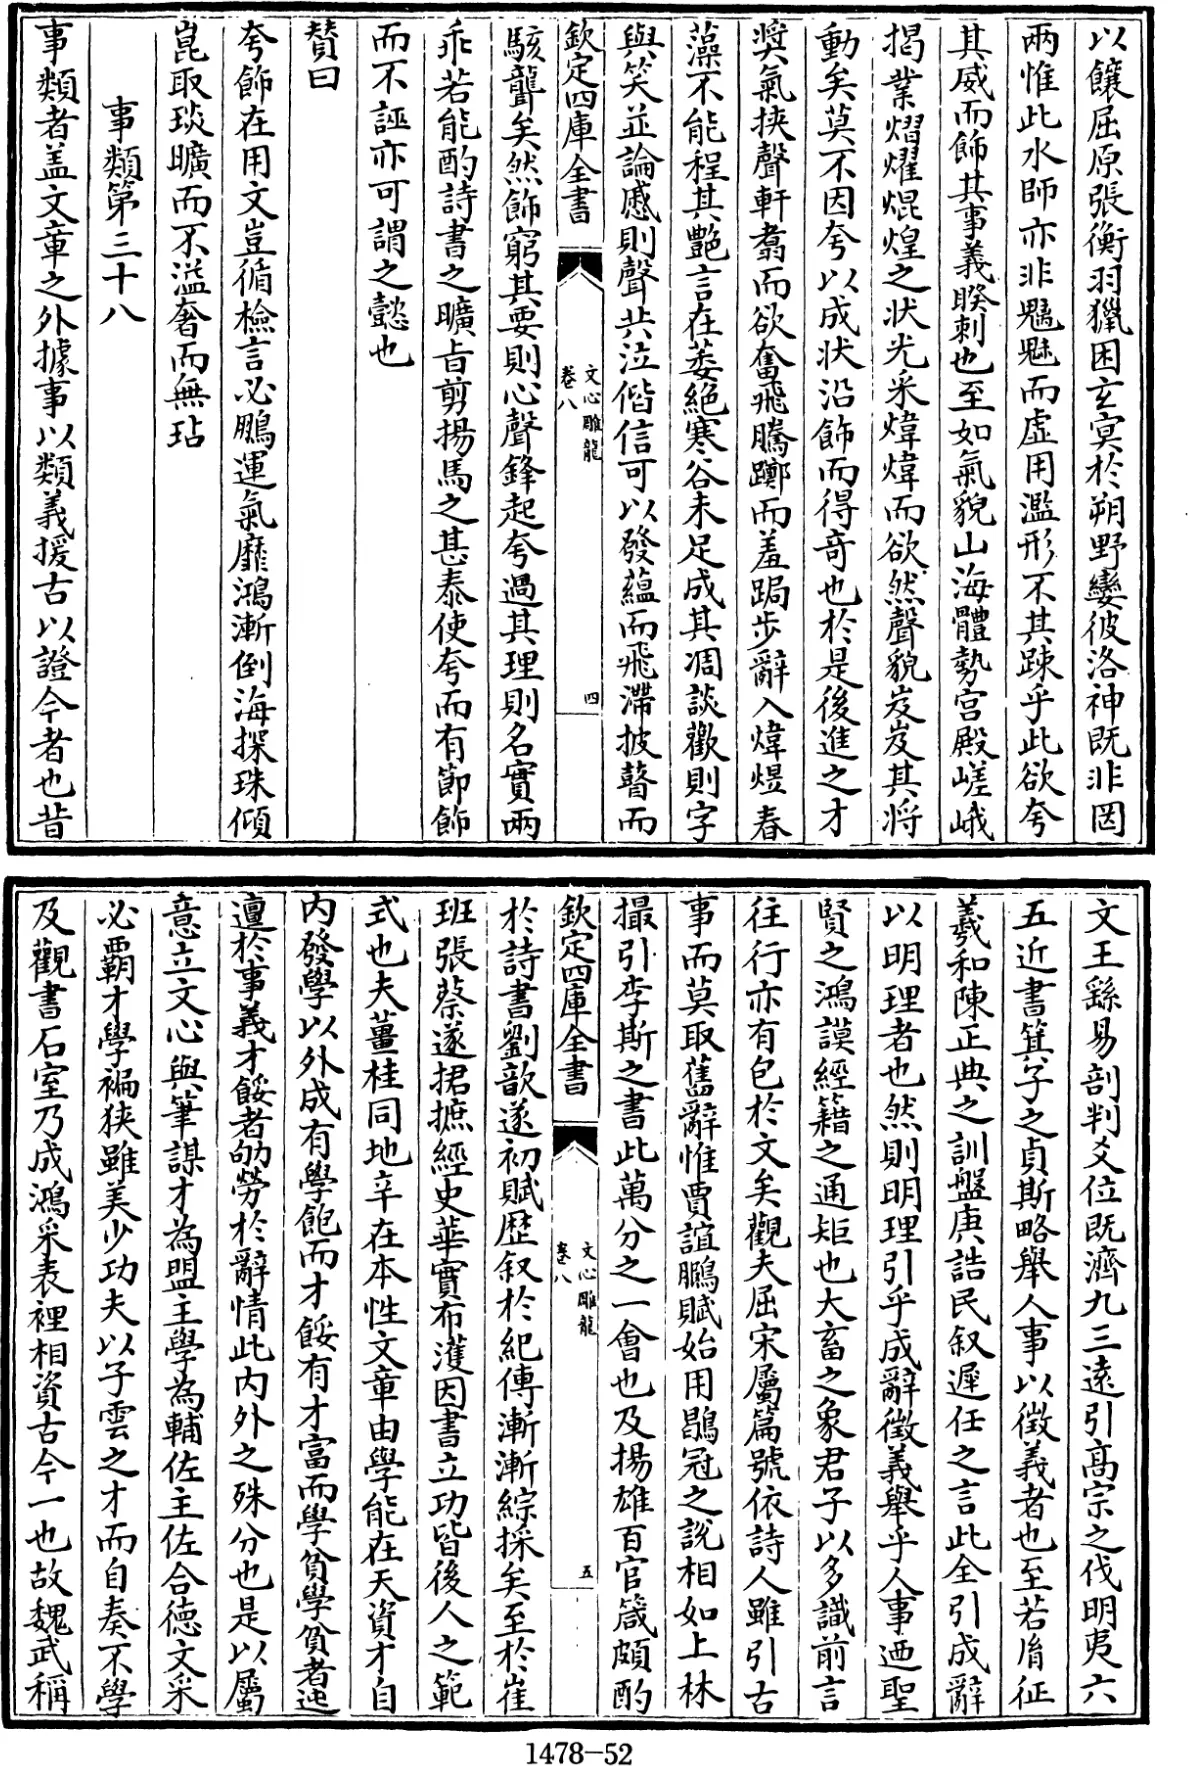 以饟屈原張衡羽獵困玄㝠於朔野孌彼洛神既非罔
兩惟此水師亦非魑魅而虚用濫形不其踈乎此欲夸
其威而飾其事義睽刺也至如氣貌山海體勢宫殿嵯峨
揭業熠燿焜煌之状光采煒煒而欲然聲貌岌岌其将
動矣莫不因夸以成状沿飾而得竒也於是後進之才
奨氣挟聲軒翥而欲奮飛騰躑而羞跼步辭入煒煜春
藻不能程其艶言在萎絶寒谷未足成其凋談歡則字
與笑並論慼則聲共泣偕信可以發藴而飛滯披瞽而
欽定四庫全書
文心雕龍
卷八
四
駭聾矣然飾窮其要則心聲鋒起夸過其理則名實兩
乖若能酌詩書之曠㫖剪揚馬之甚泰使夸而有節飾
而不誣亦可謂之懿也
賛曰
夸飾在用文豈循檢言必鵬運氣靡鴻漸倒海探珠傾
崑取琰曠而不溢奢而無玷
事類第三十八
事類者盖文章之外據事以類義援古以證今者也昔
文王繇易剖判爻位既濟九三逺引髙宗之伐明夷六
五近書箕子之貞斯略舉人事以徴義者也至若㣧征
羲和陳正典之訓盤庚誥民叙遲任之言此全引成辭
以明理者也然則明理引乎成辭徴義舉乎人事迺聖
賢之鴻謨經籍之通矩也大畜之象君子以多識前言
往行亦有包於文矣觀夫屈宋屬篇號依詩人雖引古
事而莫取舊辭惟賈誼鵩賦始用鶡冠之説相如上林
撮引李斯之書此萬分之一會也及揚雄百官箴頗酌
欽定四庫全書
文心雕龍
卷八
五
於詩書劉歆遂初賦歴叙於紀傳漸漸綜採矣至於崔
班張蔡遂捃摭經史華實布濩因書立功皆後人之範
式也夫薑桂同地辛在本性文章由學能在天資才自
内發學以外成有學飽而才餒有才富而學貧學貧者迍
邅於事義才餒者劬勞於辭情此内外之殊分也是以屬
意立文心與筆謀才為盟主學為輔佐主佐合徳文采
必霸才學褊狭雖美少功夫以子雲之才而自奏不學
及觀書石室乃成鴻采表裡相資古今一也故魏武稱
1478-52